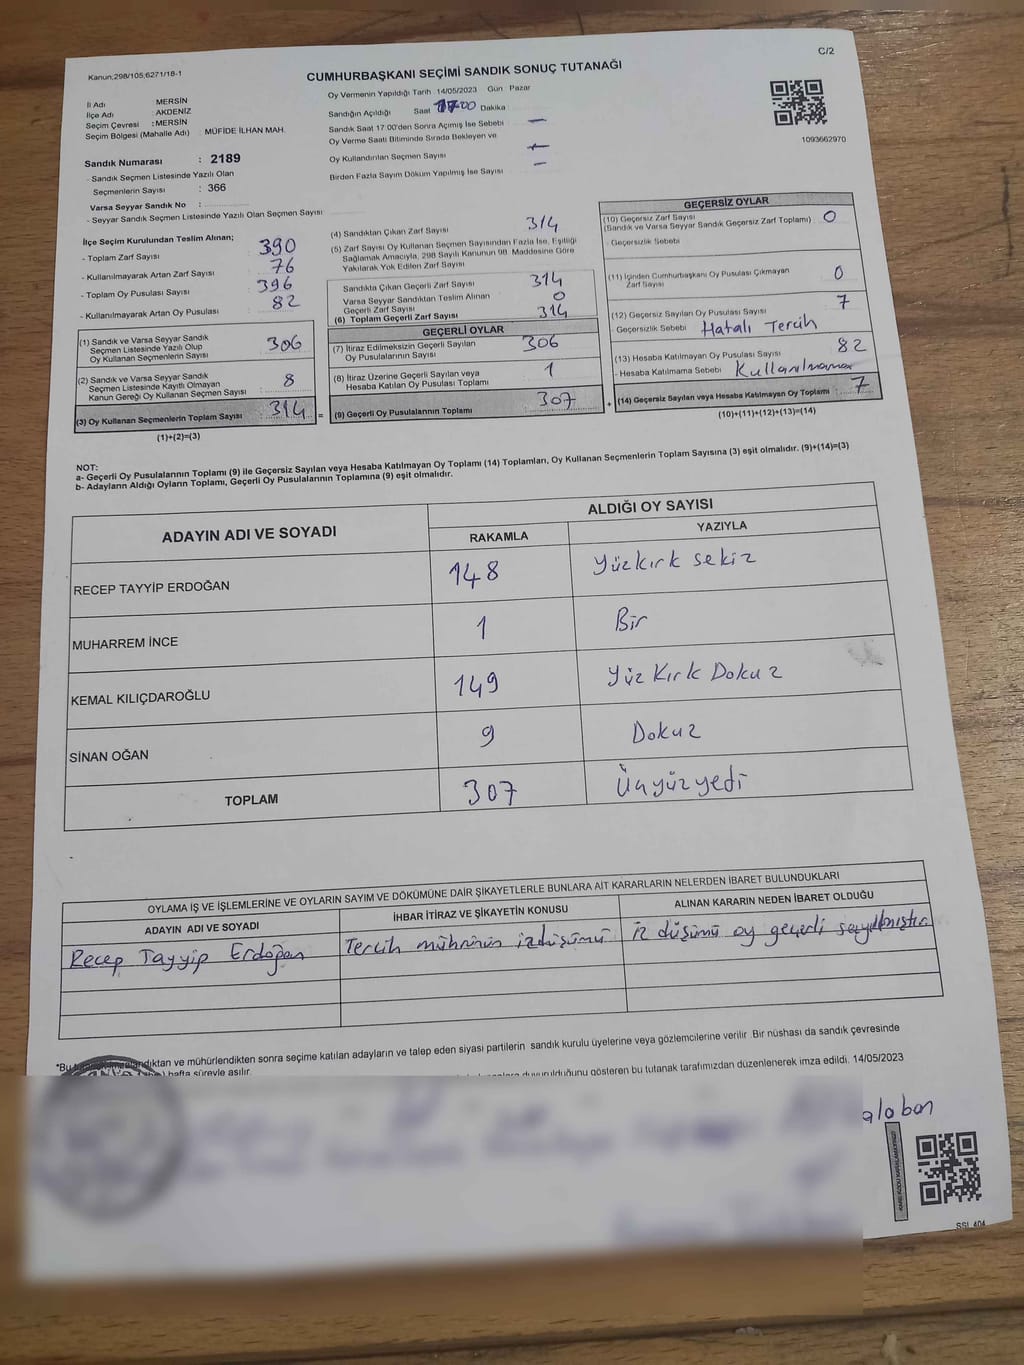 C/2
Kanun;298/105;6271/18-1
CUMHURBAŞKANI SEÇİMİ SANDIK SONUÇ TUTANAĞI
İl Adı : MERSİN
İlçe Adı : AKDENİZ
Seçim Çevresi : MERSİN
Seçim Bölgesi (Mahalle Adı) : MÜFİDE İLHAN MAH.
Sandık Numarası : 2189
- Sandık Seçmen Listesinde Yazılı Olan
Seçmenlerin Sayısı : 366
Varsa Seyyar Sandık No :
- Seyyar Sandık Seçmen Listesinde Yazılı Olan Seçmen Sayısı
Oy Vermenin Yapıldığı Tarih 14/05/2023 Gün Pazar
Sandığın Açıldığı Saat 17:00 Dakika
Sandık Saat 17:00'den Sonra Açımış İse Sebebi —
Oy Verme Saati Bitiminde Sırada Bekleyen ve
Oy Kullandırılan Seçmen Sayısı —
Birden Fazla Sayım Döküm Yapılmış İse Sayısı —
1093662970
İlçe Seçim Kurulundan Teslim Alınan;
- Toplam Zarf Sayısı 390
- Kullanılmayarak Artan Zarf Sayısı 76
- Toplam Oy Pusulası Sayısı 396
- Kullanılmayarak Artan Oy Pusulası 82
(1) Sandık ve Varsa Seyyar Sandık
Seçmen Listesinde Yazılı Olup
Oy Kullanan Seçmenlerin Sayısı 306
(2) Sandık ve Varsa Seyyar Sandık
Seçmen Listesinde Kayıtlı Olmayan
Kanun Gereği Oy Kullanan Seçmen Sayısı 8
(3) Oy Kullanan Seçmenlerin Toplam Sayısı 314 =
(1)+(2)=(3)
(4) Sandıktan Çıkan Zarf Sayısı 314
(5) Zarf Sayısı Oy Kullanan Seçmen Sayısından Fazla İse, Eşitliği
Sağlamak Amacıyla, 298 Sayılı Kanunun 98. Maddesine Göre
Yakılarak Yok Edilen Zarf Sayısı
Sandıkta Çıkan Geçerli Zarf Sayısı 314
Varsa Seyyar Sandıktan Teslim Alınan
Geçerli Zarf Sayısı 0
(6) Toplam Geçerli Zarf Sayısı 314
GEÇERLİ OYLAR
(7) İtiraz Edilmeksizin Geçerli Sayılan
Oy Pusulalarının Sayısı 306
(8) İtiraz Üzerine Geçerli Sayılan veya
Hesaba Katılan Oy Pusulası Toplamı 1
(9) Geçerli Oy Pusulalarının Toplamı 307 +
GEÇERSİZ OYLAR
(10) Geçersiz Zarf Sayısı
(Sandık ve Varsa Seyyar Sandık Geçersiz Zarf Toplamı) 0
- Geçersizlik Sebebi
(11) İçinden Cumhurbaşkanı Oy Pusulası Çıkmayan
Zarf Sayısı 0
(12) Geçersiz Sayılan Oy Pusulası Sayısı 7
- Geçersizlik Sebebi Hatalı Tercih
(13) Hesaba Katılmayan Oy Pusulası Sayısı 82
- Hesaba Katılmama Sebebi Kullanılmama
(14) Geçersiz Sayılan veya Hesaba Katılmayan Oy Toplamı 7
(10)+(11)+(12)+(13)=(14)
NOT:
a- Geçerli Oy Pusulalarının Toplamı (9) ile Geçersiz Sayılan veya Hesaba Katılmayan Oy Toplamı (14) Toplamları, Oy Kullanan Seçmenlerin Toplam Sayısına (3) eşit olmalıdır. (9)+(14)=(3)
b- Adayların Aldığı Oyların Toplamı, Geçerli Oy Pusulalarının Toplamına (9) eşit olmalıdır.
ADAYIN ADI VE SOYADI
ALDIĞI OY SAYISI
RAKAMLA YAZIYLA
RECEP TAYYİP ERDOĞAN 148 Yüzkırk sekiz
MUHARREM İNCE 1 Bir
KEMAL KILIÇDAROĞLU 149 Yüz Kırk Dokuz
SİNAN OĞAN 9 Dokuz
TOPLAM 307 Üçyüzyedi
OYLAMA İŞ VE İŞLEMLERİNE VE OYLARIN SAYIM VE DÖKÜMÜNE DAİR ŞİKAYETLERLE BUNLARA AİT KARARLARIN NELERDEN İBARET BULUNDUKLARI
ADAYIN ADI VE SOYADI İHBAR İTİRAZ VE ŞİKAYETİN KONUSU ALINAN KARARIN NEDEN İBARET OLDUĞU
Recep Tayyip Erdoğan Tercih mührünün izdüşümü iz düşümü oy geçerli sayılmıştır
ndıktan ve mühürlendikten sonra seçime katılan adayların ve talep eden siyasi partilerin sandık kurulu üyelerine veya gözlemcilerine verilir .Bir nüshası da sandık çevresinde
hafta süreyle asılır.
duyurulduğunu gösteren bu tutanak tarafımızdan düzenlenerek imza edildi. 14/05/2023
alaban
SSI 404